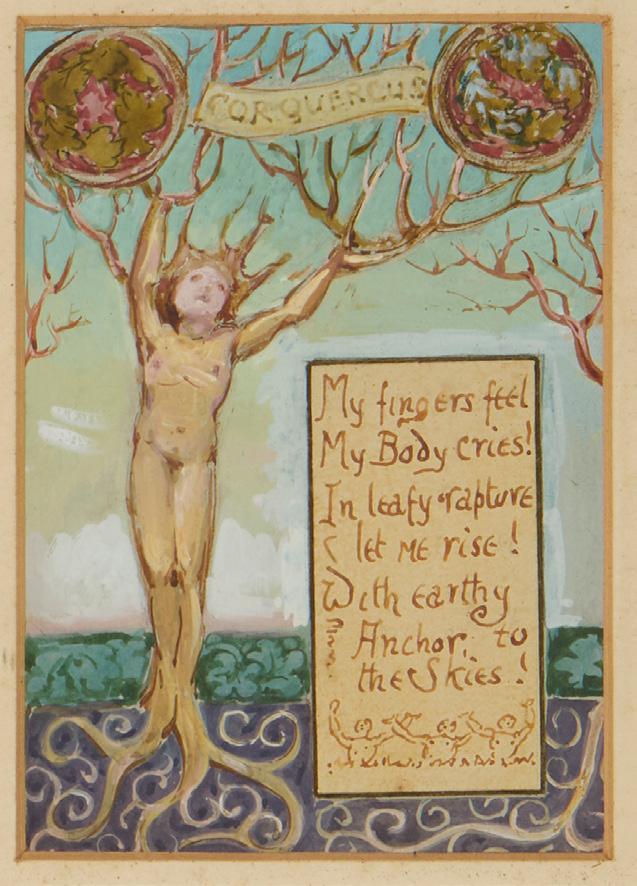 COR QUERCUS
My fingers feel
My Body cries!
In leafy rapture
let me rise !
With earthy
Anchor, to
the Skies !